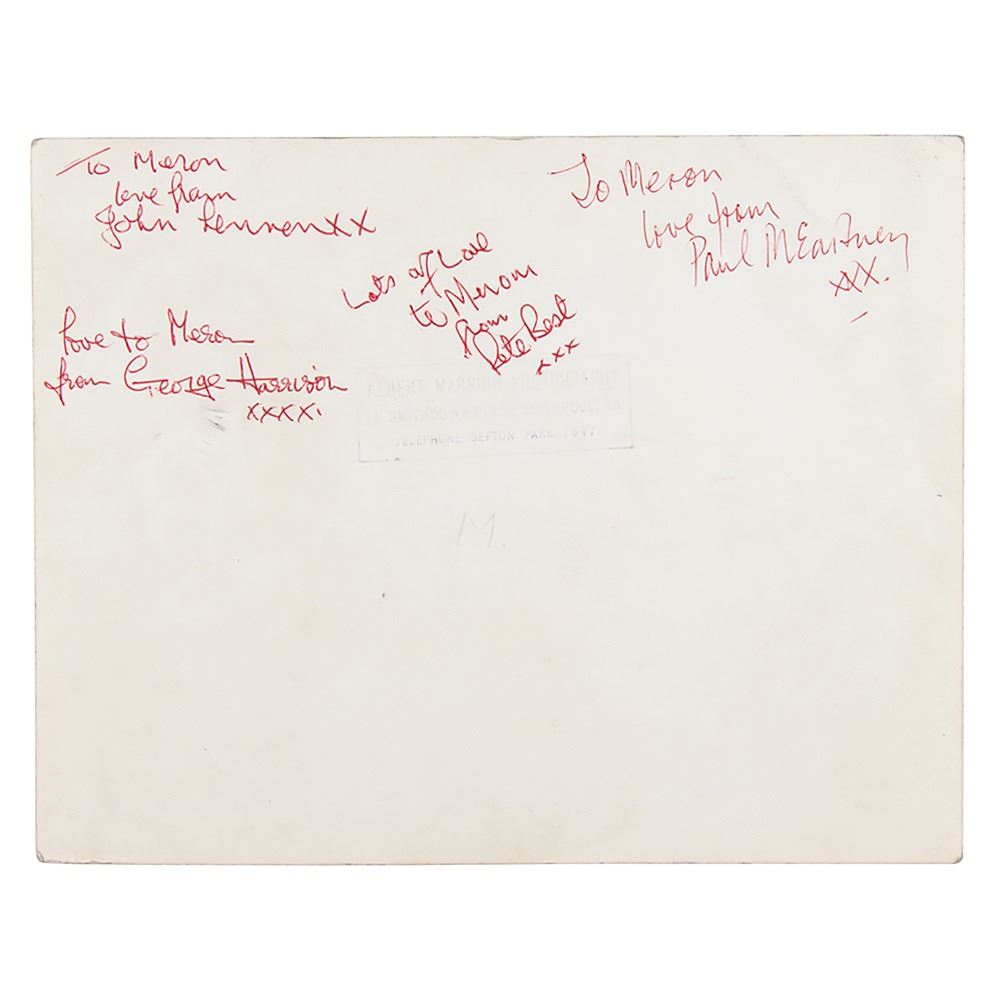 To Meron
love from
John Lennon xx
To Meron
love from
Paul McCartney
xxx.
Lots of Love
to Meron
from
Pete Best
xxx
love to Meron
from George Harrison
xxxx.
ALBERT MARRION PHOTOGRAPHY
SMITHDOWN PLACE, LIVERPOOL, 15.
TELEPHONE SEFTON PARK 1547
M.